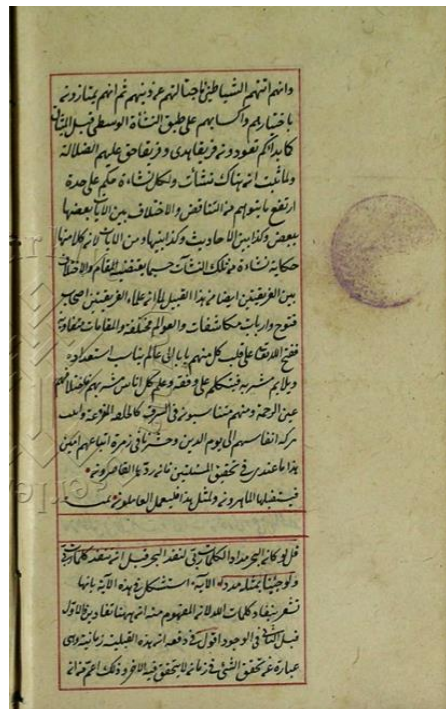 وانهم اتتهم الشياطين فاجتالتهم عن دينهم ثم انهم يمتازون
باختيارهم واكسابهم على طبق النشأة الوسطى قبل
كما بدأكم تعودون فريقا هدى وفريقا حق عليهم الضلالة
ولما ثبت ان هناك نشآت ولكل نشاءة حكم على حدة
ارتفع ما يتوهم من التناقض والاختلاف بين الآيات بعضها
ببعض وكذا بين الاحاديث وكذا بينها وبين الآيات لان كلا منها
حكاية نشاءة من تلك النشآت حسبما يقتضيه المقام والاختلاف
بين الفريقين ايضا من هذا القبيل لما ان علماء الفريقين اصحاب
فتوح وارباب مكاشفات والعوالم مختلفة والمقامات متفاوتة
ففتح الله تعالى على قلب كل منهم بابا الى عالم يناسب استعداده
ويلايم مشربه فيتكلم على وفقه وعلم كل اناس مشربهم فاختلافهم
عين الرحمة ومنهم متناسبون في الشرف كالحلقة المفرغة
بركة انفاسهم الى يوم الدين وحشرنا في زمرة اتباعهم امين
هذا ما عندي في تحقيق المسئلتين فان رده القاصرون
فسيقبلها الماهرون ولمثل هذا فليعمل العاملون تمت
قل لو كان البحر مدادا لكلمات ربي لنفد البحر قبل ان تنفد كلمات ربي
ولو جئنا بمثله مددا الآية استشكل في هذه الآية بانها
تشعر بنفاد كلمات الله لان المفهوم منه ان ههنا نفادين الاول
قبل الثاني في الوجود اقول في دفعه ان هذه القبلية زمانية وهي
عبارة عن تحقق الشئ في زمان لا يتحقق فيه الآخر وذلك اعم من ان